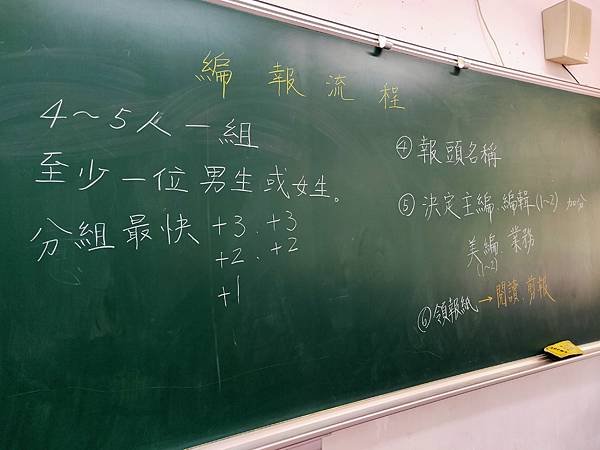 編報流程
4～5人一組
至少一位男生或女生。
分組最快 +3、+3
+2、+2
+1
④報頭名稱
⑤決定主編、編輯(1~2) 加分
美編、業務
(1~2)
⑥領報紙→閱讀、剪報